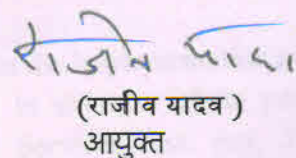 राजीव यादव
(राजीव यादव)
आयुक्त